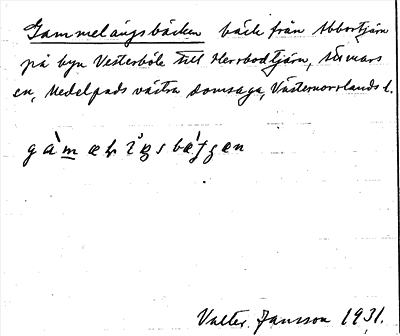 Gammelängsbäcken bäck från Abborrtjärn
på byn Vesterböle till Herrbodtjärn,
en, Medelpads västra domsaga, Västernorrlands l.
Valter Jansson 1931.